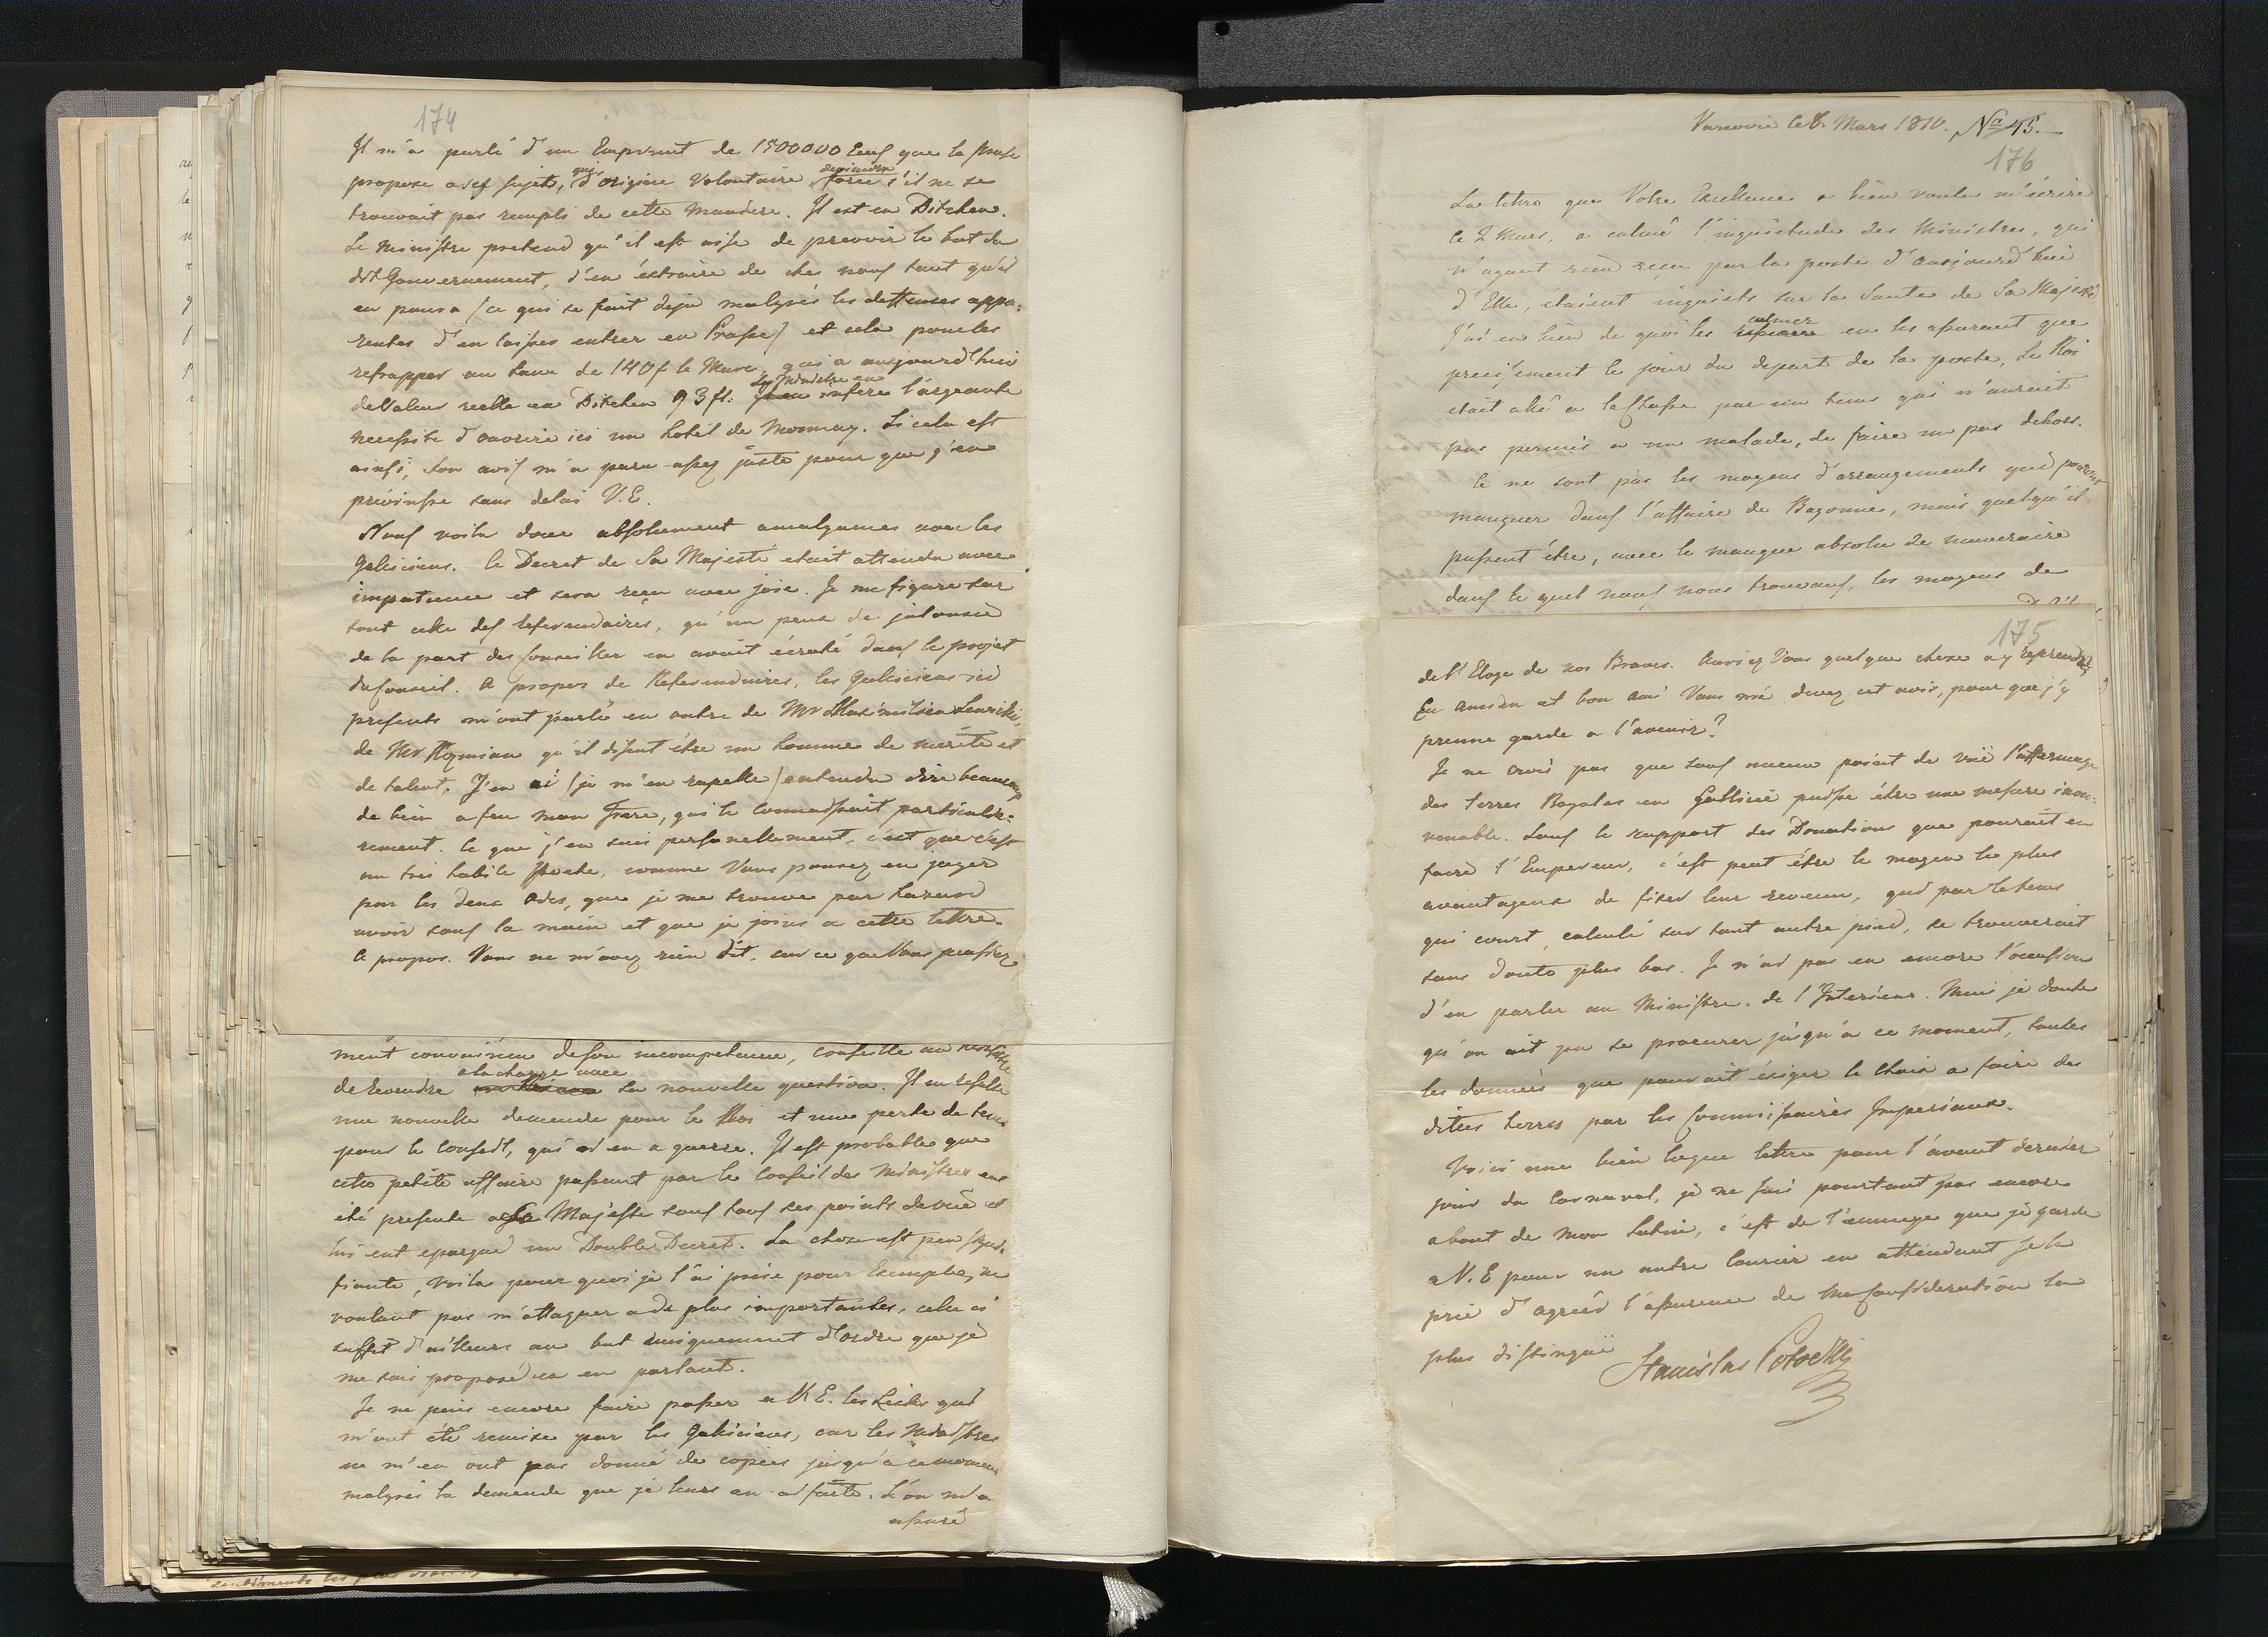 174
Il m'a parlé d'un Emprunt de 1500000 Ecus que la Prusse
propose a ses sujets, qui d'origine volontaire deviendra forcé s'il ne se
trouvait pas rempli de cette maniere. Il est en Ditchen.
Le Ministre pretend qu'il est aise de prevoir le but du
dit Gouvernement, d'en éxtraire de chez nous tant qu'il
en poura (ce qui se fait deja malgrés les deffenses appa:
rentes d'en laisser entrer en Prusse) et cela pour les
refrapper au taux de 140 f le Marc, qui a aujourd'hui
de Valeur reelle en Ditchen 93 fl: Le Ministre en infere l'urgeante
necessité d'ouvrire ici un hotél de Monnay. Si cela est
ainsi, son avis m'a paru assez juste pour que j'en
prévinsse sans delai V.E.
Nous voila donc absolument amalgamés avec les
Galiciens. le Decret de Sa Majesté etait attendu avec
impatience et sera reçu avec joie. Je me figure sur
tout celle des referendaires, qu'un peux de jalousie
de la part des Conseiller en avait écarté dans le projet
du Conseil. A propos de Referendaires, les Galiciens ici
presents m'ont parlé en outre de Mr Maximilien
de Mr Kozmian qu'il disent être un homme de merite et
de talent. J'en ai (je m'en rapelle) entendu dire beaucoup
de bien a feu mon Frere, qui le connaissait particulie:
rement. Ce que j'en sais personellement, c'est que c'est
un tres habile Poete, comme Vous pouvez en juger
par les deux Odes, que je me trouve par hazard
avoir sous la main et que je joins a cette lettre.
A propos. Vous ne m'avez rien dit, sur ce que Vous pensiez
ment convaincu de son incompetence, conseille au
de revendre a la charge avec sa nouvelle question. Il en resulte
une nouvelle demande pour le Roi et une perte de tems
pour le Conseil, qui n'en a guerre. Il est probable que
cette petite affaire passant par le Conseil des Ministres eut
été presenté a Sa Majesté sous tous ses points de vuë et
lui eut epargné un Double Decret. La chose est peu signi:
fiante, voila pour quoi je l'ai prise pour Exemple, ne
voulant pas m'attaquer a de plus importantes, celle ci
suffit d'ailleurs au but uniquement d'ordre que je
me suis proposé en en parlant.
Je ne puis encore faire passer a V.E. les Listes qui
m'ont été remise par les Galiciens, car les Ministres
ne m'en ont pas donné de copies jusqu'à ce moment
malgrés la demande que je leurs en ai faite. L'on m'a
assuré
Varsovie le 8. Mars 1810. No 45.
176
La lettre que Votre Excellence a bien voulu m'écrire
le 2 Mars, a calmé l'inquiétude des Ministres, qui
n'ayant rien reçu par la poste d'aujourd'hui
d'Elle, étaient inquiets sur la Santé de Sa Majesté
J'ai eu bien de quoi les calmer en les assurant que
precisement le jour du depart de la poste, le Roi
etait allé a la Chasse par un tems qui n'aurait
pas permis a un malade, de faire un pas dehors.
Ce ne sont pas les moyens d'arrangements qui pouront
manquer dans l'affaire de Bayonne, mais quelqu'il
pussent être, avec le manque absolu de numeraire
dans le quel nous nous trouvons, les moyens de
175
de l'Eloge de nos Braves. Auriez Vous quelque chose a y reprendre,
En ancien et bon ami Vous me devez cet avis, pour que j'y
prenne garde a l'avenir?
Je ne crois pas que sous aucun point de vuë l'affermage
des terres Royales en Gallicie puisse être une mesure incon:
venable. Sauf le rapport des Donations que pourait en
faire l'Empereur, c'est peut être le moyen le plus
avantageux de fixer leur revenu, qui par le tems
qui court, calculé sur tout autre pied, se trouverait
sans doute plus bas. Je n'ai pas eu encore l'occasion
d'en parler au Ministre de l'Interieur. Mais je doute
qu'on ait pu se procurer jusqu'à ce moment, toutes
les données que pouvait éxiger le choix a faire des
dittes terres par les Commissaires Imperiaux.
Voici une bien longue lettre pour l'avant dernier
jour du Carnaval, je ne suis pourtant pas encore
about de mon Latin, c'est de l'ennuye que je garde
a V.E pour un autre Courier en attendant je la
prie d'agréer l'assurance de ma Consideration la
plus distinguée
Stanislas Potocki